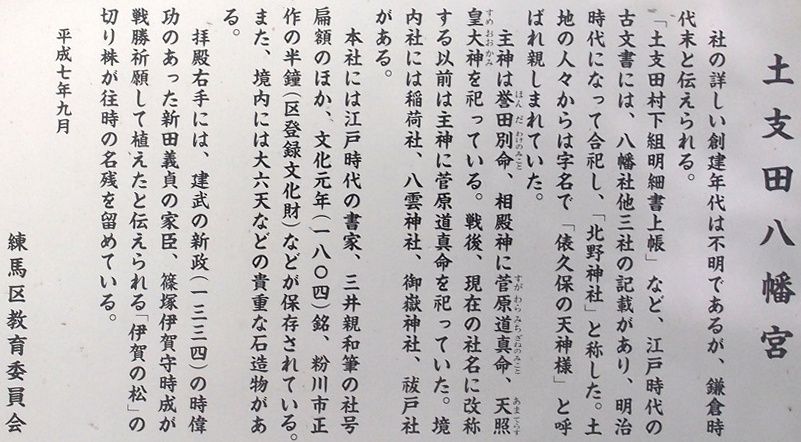 土支田八幡宮
社の詳しい創建年代は不明であるが、鎌倉時
代末と伝えられる。
「土支田村下組明細書上帳」など、江戸時代の
古文書には、八幡社他三社の記載があり、明治
時代になって合祀し、「北野神社」と称した。土
地の人々からは字名で「俵久保の天神様」と呼
ばれ親しまれていた。
主神は誉田別命、相殿神に菅原道真命、天照
皇大神を祀っている。戦後、現在の社名に改称
する以前は主神に菅原道真命を祀っていた。境
内社には稲荷社、八雲神社、御嶽神社、祓戸社
がある。
本社には江戸時代の書家、三井親和筆の社号
扁額のほか、文化元年(一八〇四)銘、粉川市正
作の半鐘(区登録文化財)などが保存されている。
また、境内には大六天などの貴重な石造物があ
る。
拝殿右手には、建武の新政(一三三四)の時偉
功のあった新田義貞の家臣、篠塚伊賀守時成が
戦勝祈願して植えたと伝えられる「伊賀の松」の
切り株が往時の名残を留めている。
平成七年九月
練馬区教育委員会